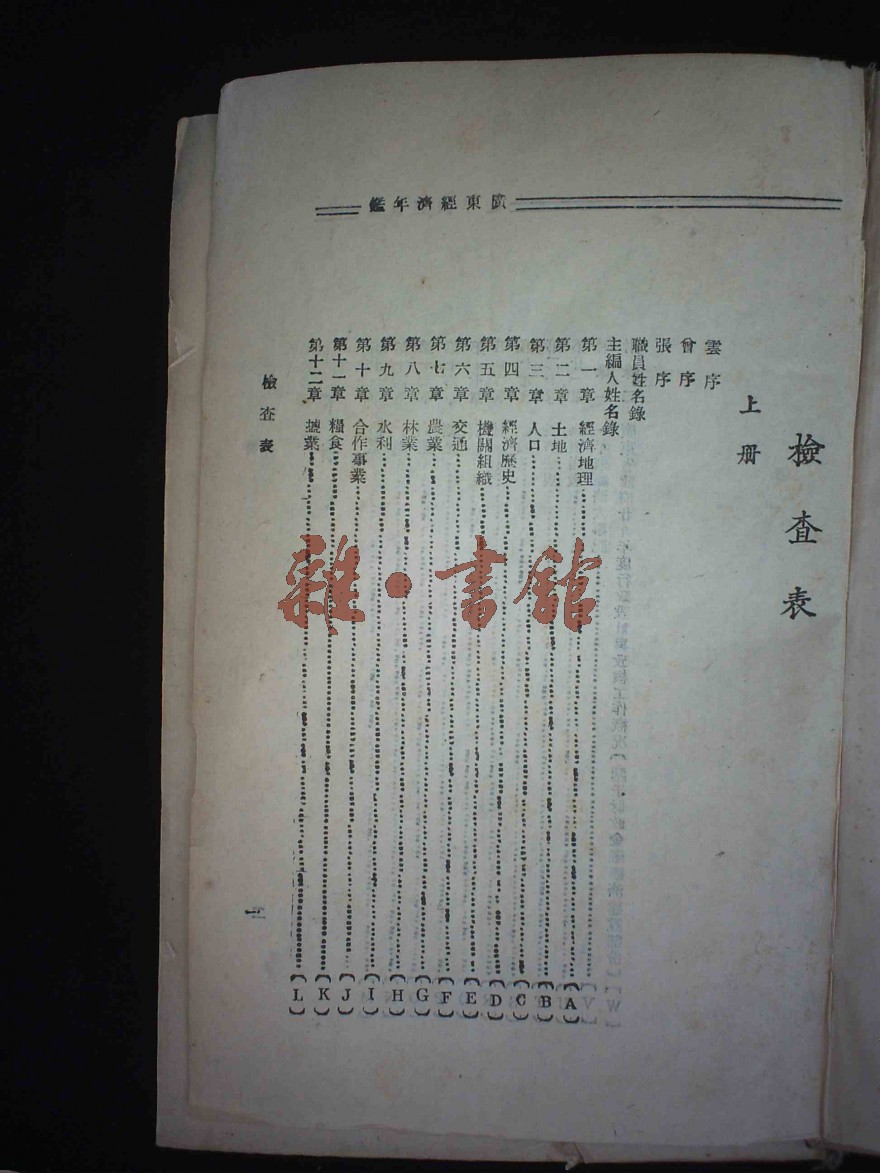 廣東經濟年鑑
檢查表
上册
雲序
曾序
張序
職員姓名錄
主編人姓名錄
第一章 經濟地理〔A〕
第二章 土地〔B〕
第三章 人口〔C〕
第四章 經濟歷史〔D〕
第五章 機關組織〔E〕
第六章 交通〔F〕
第七章 農業〔G〕
第八章 林業〔H〕
第九章 水利〔I〕
第十章 合作事業〔J〕
第十一章 糧食〔K〕
第十二章 墟業〔L〕
檢查表
一
雜·書館